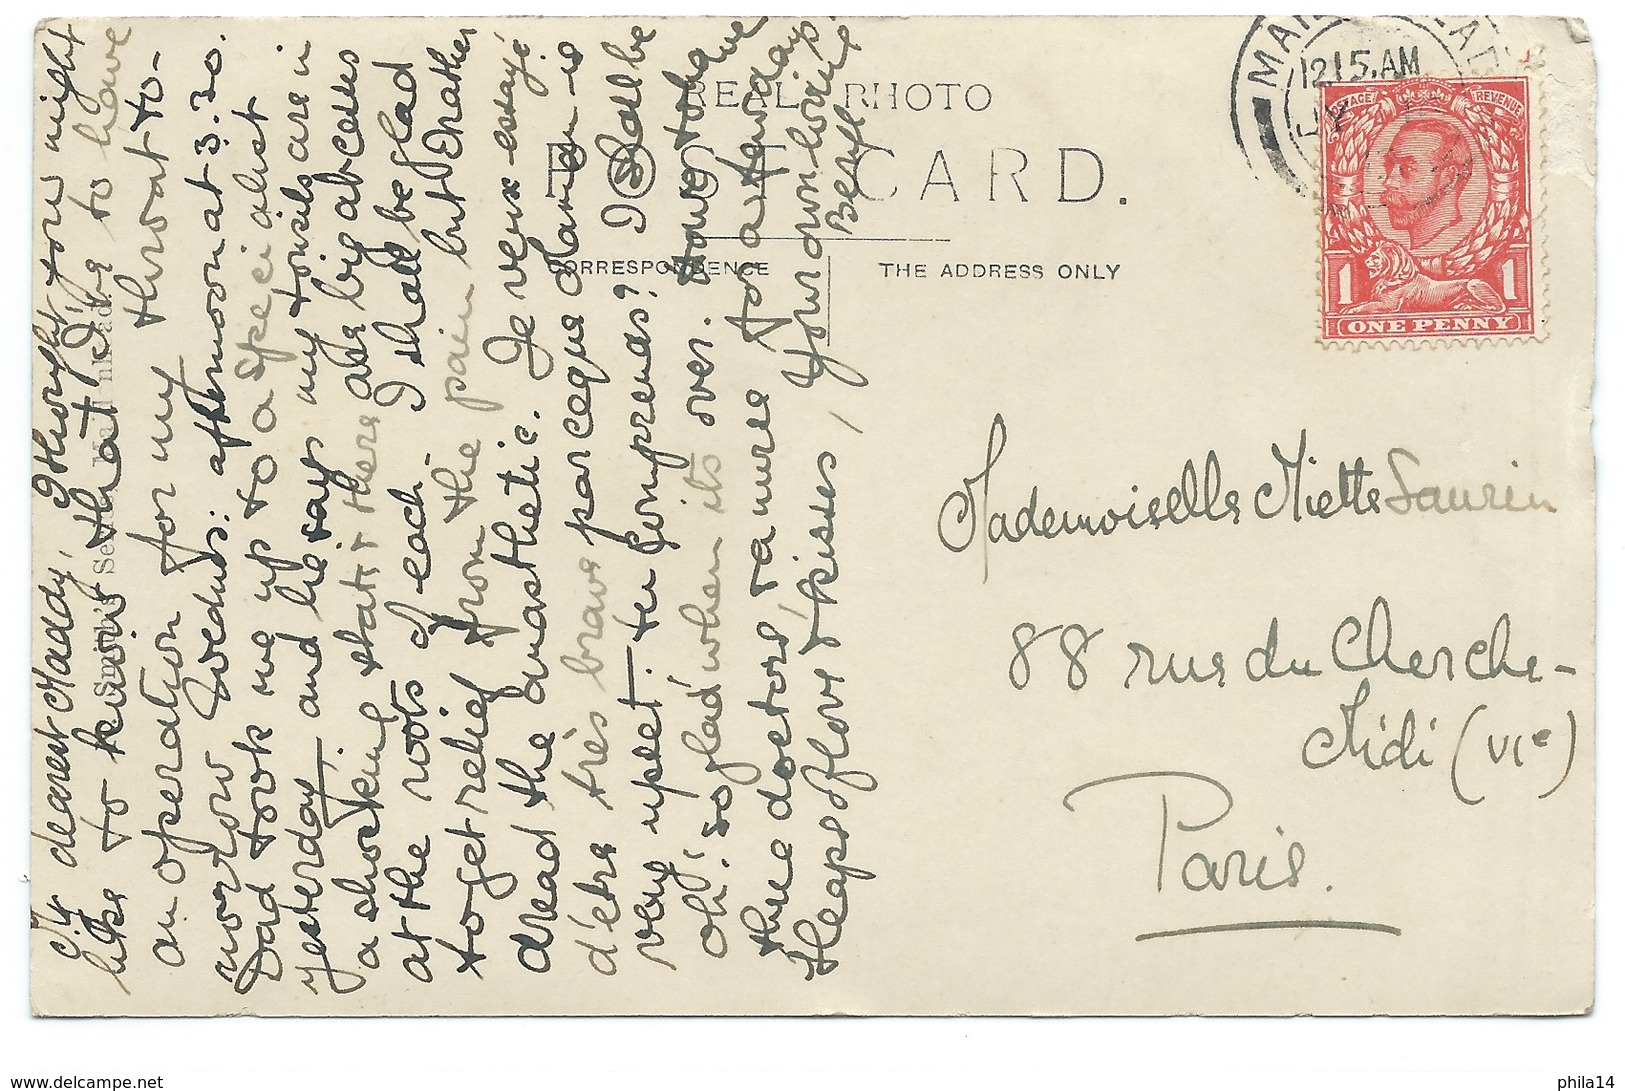 My dearest Maddy, I thought you might
like to know that I'm going to have
an operation for my throat to-
morrow Wednes: afternoon at 3.30.
Dad took me up to a specialist
yesterday, and he says my tonsils are in
a shocking state & there are big abcesses
at the roots of each. I shall be glad
to get relief from the pain but I rather
dread the anasthetic. Je veux essayé
d'être très brave parceque maman is
very upset. tu comprenas? I shall be
oh! so glad when its over. Have to have
three doctors & a nurse for a few days
Heaps of love & kisses, Your own loving
Beryl
Smith's
REAL PHOTO
POST CARD.
CORRESPONDENCE
THE ADDRESS ONLY
MAI
12.15.AM
POSTAGE REVENUE
1 1
ONE PENNY
Mademoiselle Miette Saurin
88 rue du Cherche-
Midi (VIe)
Paris.
www.delcampe.net
phila14